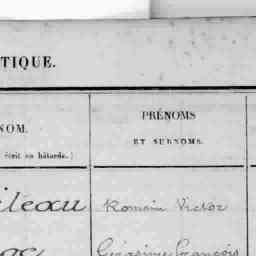 TIQUE.
NOM.
écrit en bâtarde.)
PRÉNOMS
ET SURNOMS.
ileau Romain Victor
Gérasime François